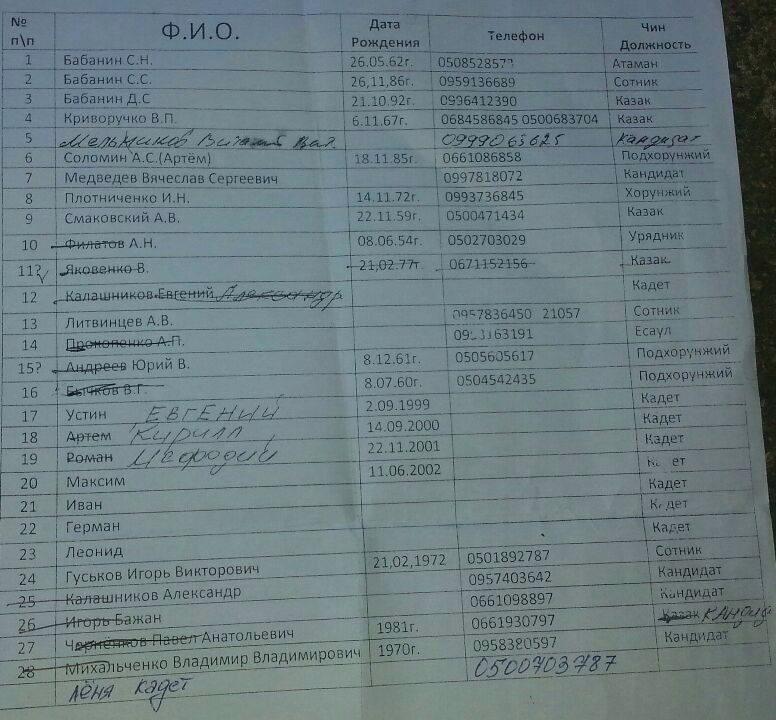 № п\п Ф.И.О. Дата Рождения Телефон Чин Должность
1 Бабанин С.Н. 26.05.62г. Атаман
2 Бабанин С.С. 26,11,86г. 0959136689 Сотник
3 Бабанин Д.С 21.10.92г. 0996412390 Казак
4 Криворучко В.П. 6.11.67г. 0684586845 0500683704 Казак
5 Мельников 0999065625 Кандидат
6 Соломин А.С.(Артём) 18.11.85г. 0661086858 Подхорунжий
7 Медведев Вячеслав Сергеевич 0997818072 Кандидат
8 Плотниченко И.Н. 14.11.72г. 0993736845 Хорунжий
9 Смаковский А.В. 22.11.59г. 0500471434 Казак
10 Филатов А.Н. 08.06.54г. 0502703029 Урядник
11? Яковенко В. 21,02.77г. 0671152156 Казак
12 Калашников Евгений Александр Кадет
13 Литвинцев А.В. 0957836450 21057 Сотник
14 Прокопенко А.П. Есаул
15? Андреев Юрий В. 8.12.61г. 0505605617 Подхорунжий
16 Бычков В.Г. 8.07.60г. 0504542435 Подхорунжий
17 Устин ЕВГЕНИЙ 2.09.1999 Кадет
18 Артем Кирилл 14.09.2000 Кадет
19 Роман Мефодий 22.11.2001 Кадет
20 Максим 11.06.2002 Кадет
21 Иван Кадет
22 Герман Кадет
23 Леонид Кадет
24 Гуськов Игорь Викторович 21,02,1972 0501892787 Сотник
25 Калашников Александр 0957403642 Кандидат
26 Игорь Бажан 0661098897 Кандидат
27 Черненков Павел Анатольевич 1981г. 0661930797 Казак
28 Михальченко Владимир Владимирович 1970г. 0958380597 Кандидат
Лёня Кадет 0500703787